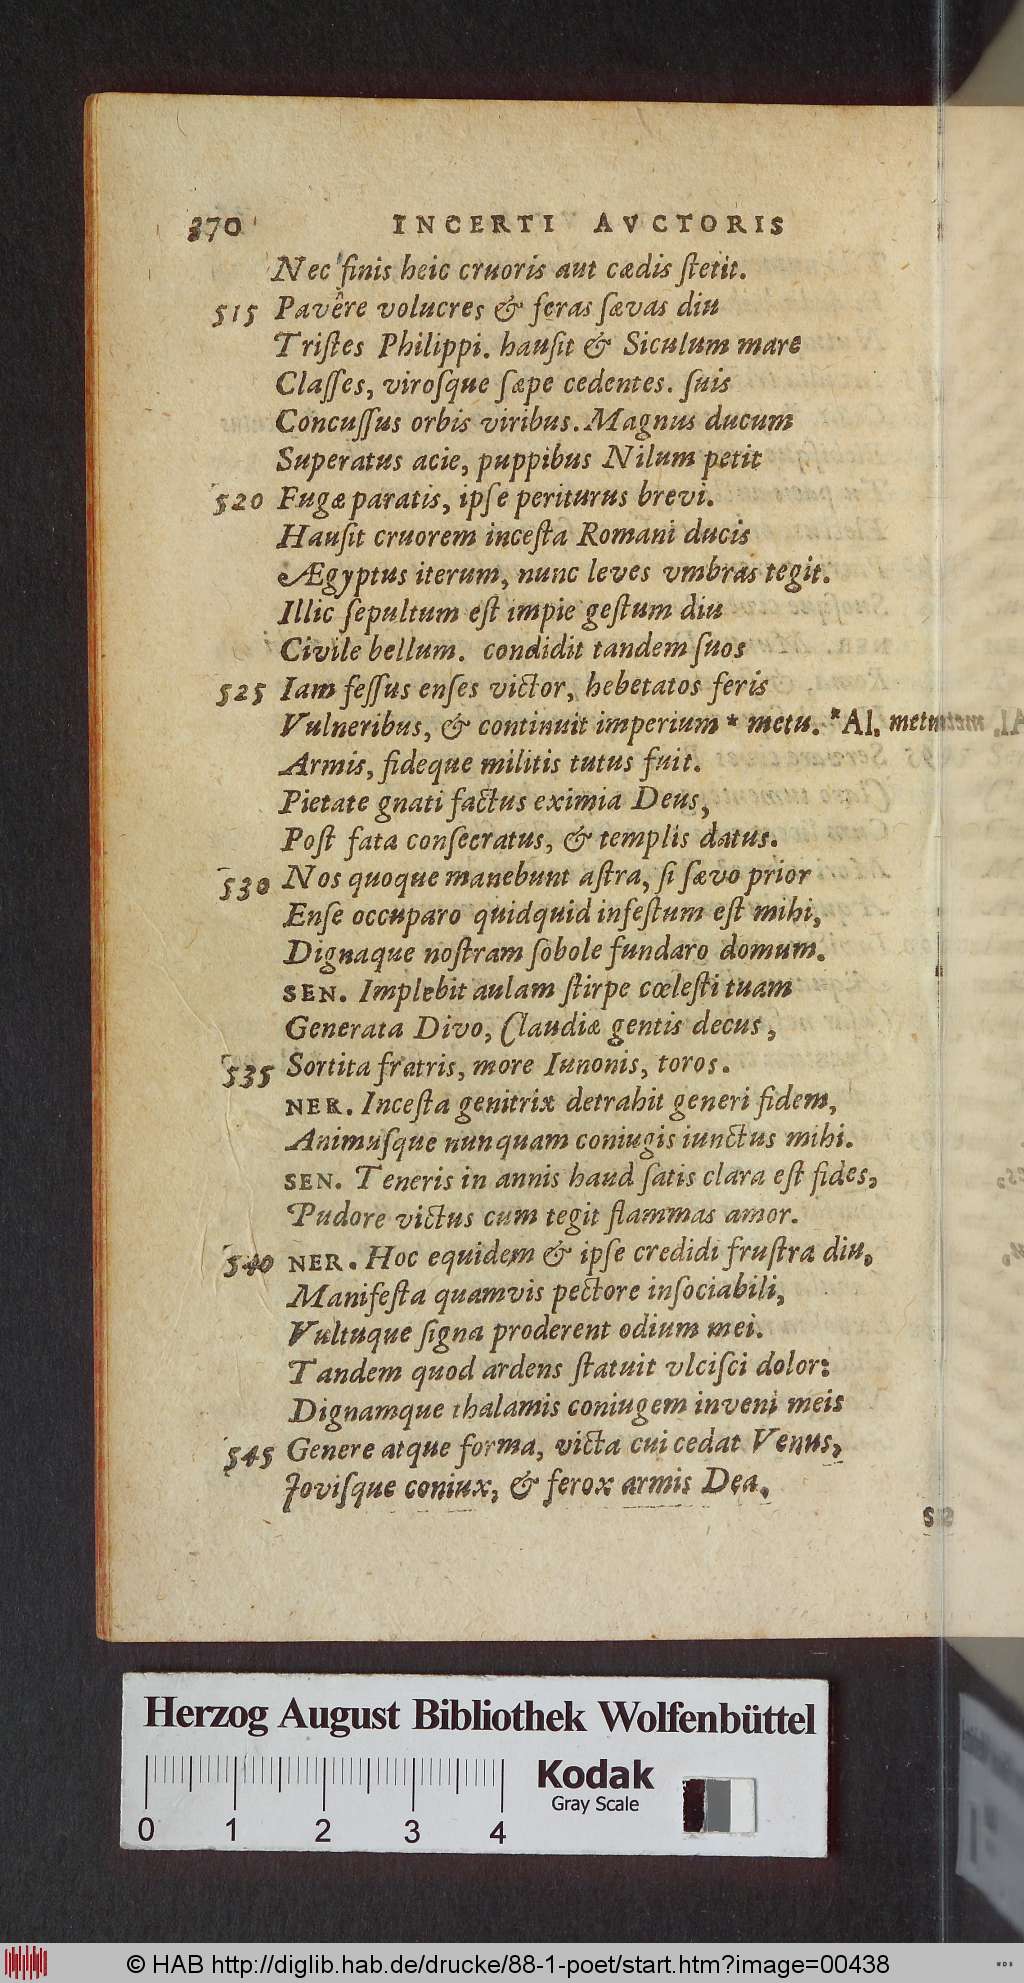 370 INCERTI AVCTORIS
Nec finis heic cruoris aut cædis ſtetit.
515 Pavêre volucres & feras ſævas diu
Triſtes Philippi. hauſit & Siculum mare
Claſſes, viroſque ſæpe cedentes. ſuis
Concuſſus orbis viribus. Magnus ducum
Superatus acie, puppibus Nilum petit
520 Fugæ paratis, ipſe periturus brevi.
Hauſit cruorem inceſta Romani ducis
Ægyptus iterum, nunc leves vmbras tegit.
Illic ſepultum eſt impie geſtum diu
Civile bellum. condidit tandem ſuos
525 Iam feſſus enſes victor, hebetatos feris
Vulneribus, & continuit imperium * metu. *Al. metu
Armis, fideque militis tutus fuit.
Pietate gnati factus eximia Deus,
Poſt fata conſecratus, & templis datus.
530 Nos quoque manebunt aſtra, ſi ſævo prior
Enſe occuparo quidquid infeſtum eſt mihi,
Dignaque noſtram ſobole fundaro domum.
SEN. Implebit aulam ſtirpe cœleſti tuam
Generata Divo, Claudiæ gentis decus,
535 Sortita fratris, more Iunonis, toros.
NER. Inceſta genitrix detrahit generi fidem,
Animuſque nunquam coniugis iunctus mihi.
SEN. Teneris in annis haud ſatis clara eſt fides,
Pudore victus cum tegit flammas amor.
540 NER. Hoc equidem & ipſe credidi fruſtra diu,
Manifeſta quamvis pectore inſociabili,
Vultuque ſigna proderent odium mei.
Tandem quod ardens ſtatuit vlciſci dolor:
Dignamque thalamis coniugem inveni meis
545 Genere atque forma, victa cui cedat Venus,
Joviſque coniux, & ferox armis Dea.
Herzog August Bibliothek Wolfenbüttel
Kodak
Gray Scale
0 1 2 3 4
© HAB http://diglib.hab.de/drucke/88-1-poet/start.htm?image=00438